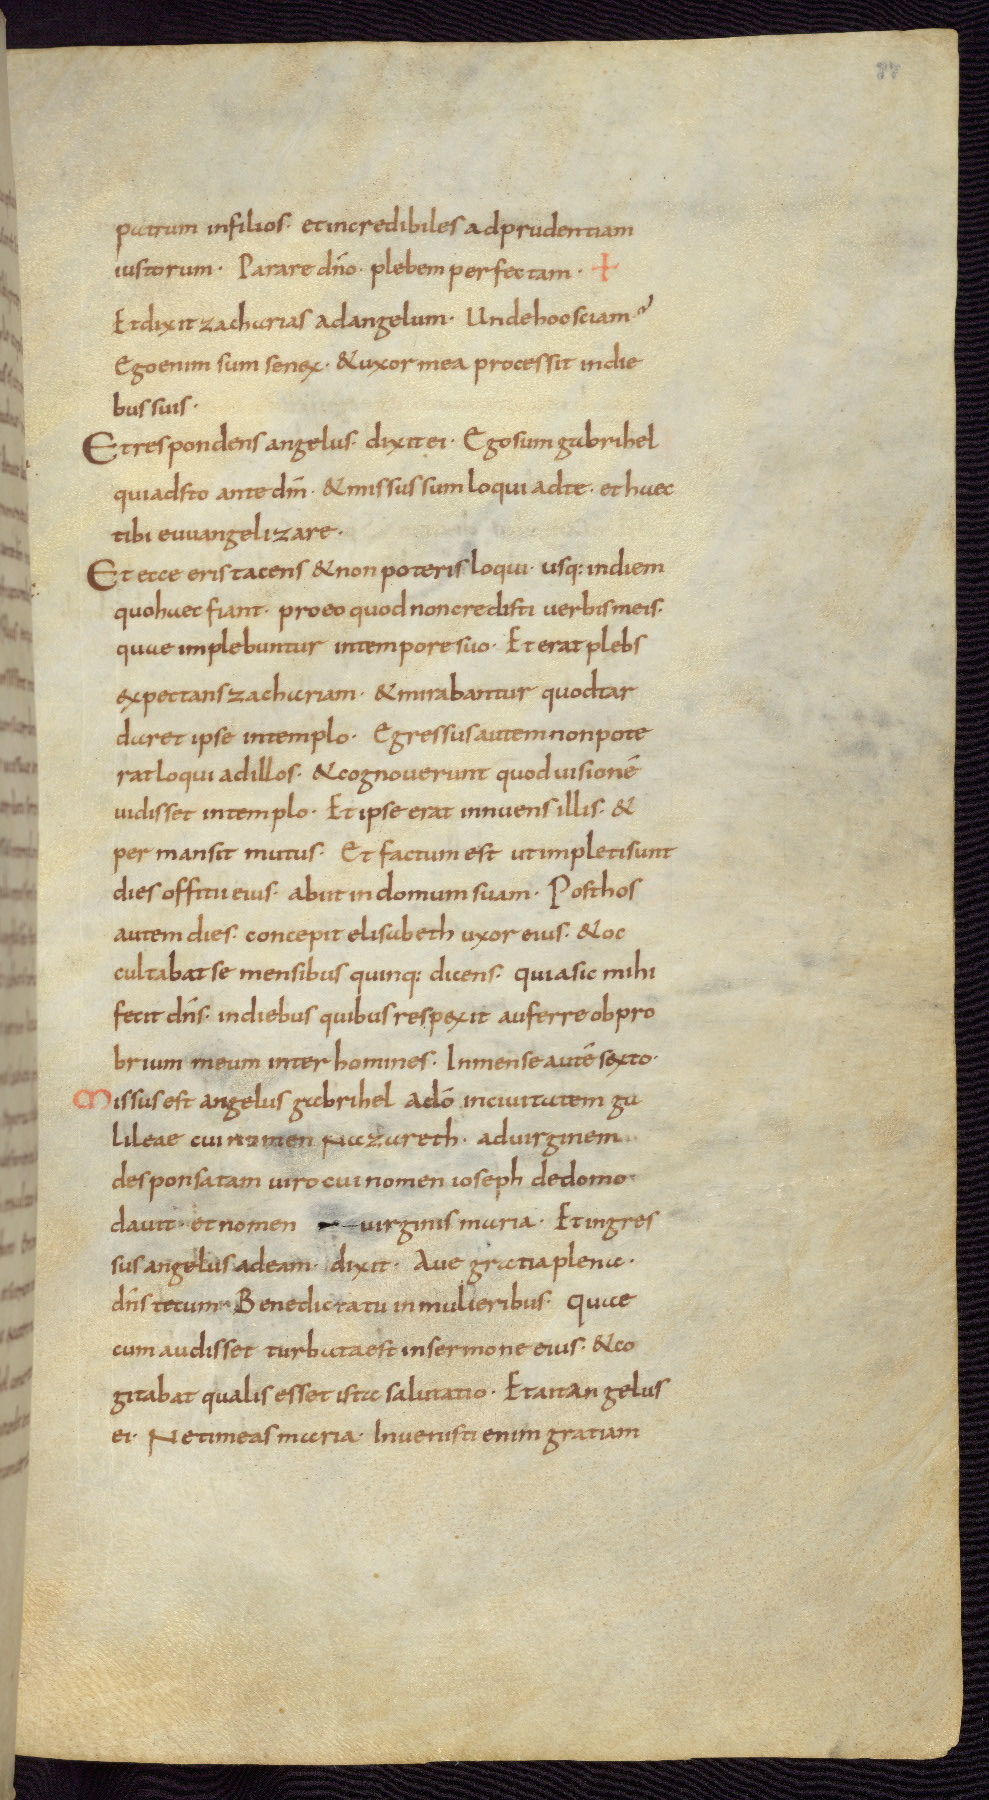 patrum infilios· etincredibiles adprudentiam
iustorum· Parare dn̄o· plebem perfectam· +
Etdixit zacharias adangelum· Undehoc sciam·
Egoenim sum senex· &uxor mea processit indie
bus suis·
Etrespondens angelus· dixit ei· Egosum gabrihel
quiadsto ante dm̄· &missus sum loqui adte· et haec
tibi euuangelizare·
Et ecce eris tacens &non poteris loqui· usq: indiem
quohaec fiant· proeo quod noncredisti uerbis meis·
quae implebuntur intempore suo· Et erat plebs
expectans zachariam· &mirabantur quodtar
daret ipse intemplo· Egressus autem nonpote
rat loqui adillos· &cognouerunt quod uisionē
uidisset intemplo· Et ipse erat innuens illis· &
per mansit mutus· Et factum est ut impleti sunt
dies offitii eius· abiit in domum suam· Posthos
autem dies· concepit elisabeth uxor eius· &oc
cultabat se mensibus quinq: dicens· quia sic mihi
fecit dn̄s· indiebus quibus respexit auferre obpro
brium meum inter homines· Inmense autē sexto·
missus est angelus gabrihel adō inciuitatem ga
lileae cui nomen nazareth· aduirginem
desponsatam uiro cui nomen ioseph dedomo·
dauit· et nomen uirginis maria· Et ingres
sus angelus adeam· dixit· Aue gratia plena·
dn̄s tecum· Benedicta tu in mulieribus· Quae
cum audisset turbata est in sermone eius· &co
gitabat qualis esset ista salutatio· Et ait angelus
ei· Ne timeas maria· Inuenisti enim gratiam